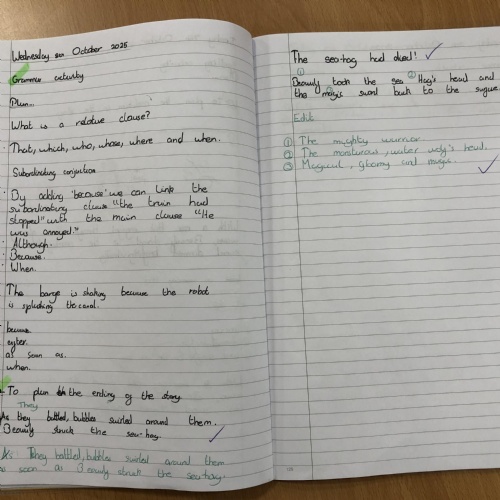 Wednesday 8th October 2025
Grammar activity
Plan..
What is a relative clause?
That, which, who, whose, where and when.
Subordinating conjuction
By adding 'because' we can link the
subordinating clause "the train had
stopped" with the main clause "He
was annoyed."
Although.
Because.
When.
The barge is shaking because the robot
is splashing the canal.
because.
after.
as soon as.
when.
To plan the ending of the story.
They
As they battled, bubbles swirled around them.
Beowulf struck the sea-hag.
A: They battled, bubbles swirled around them
as soon as Beowulf struck the sea-hag.
The sea-hag had died! ✓
①
Beowulf took the sea ② Hag's head and
the magic sword back to the
Edit
① The mighty warrior
② The monsterous, water head.
③ Magical, gloomy and magic.